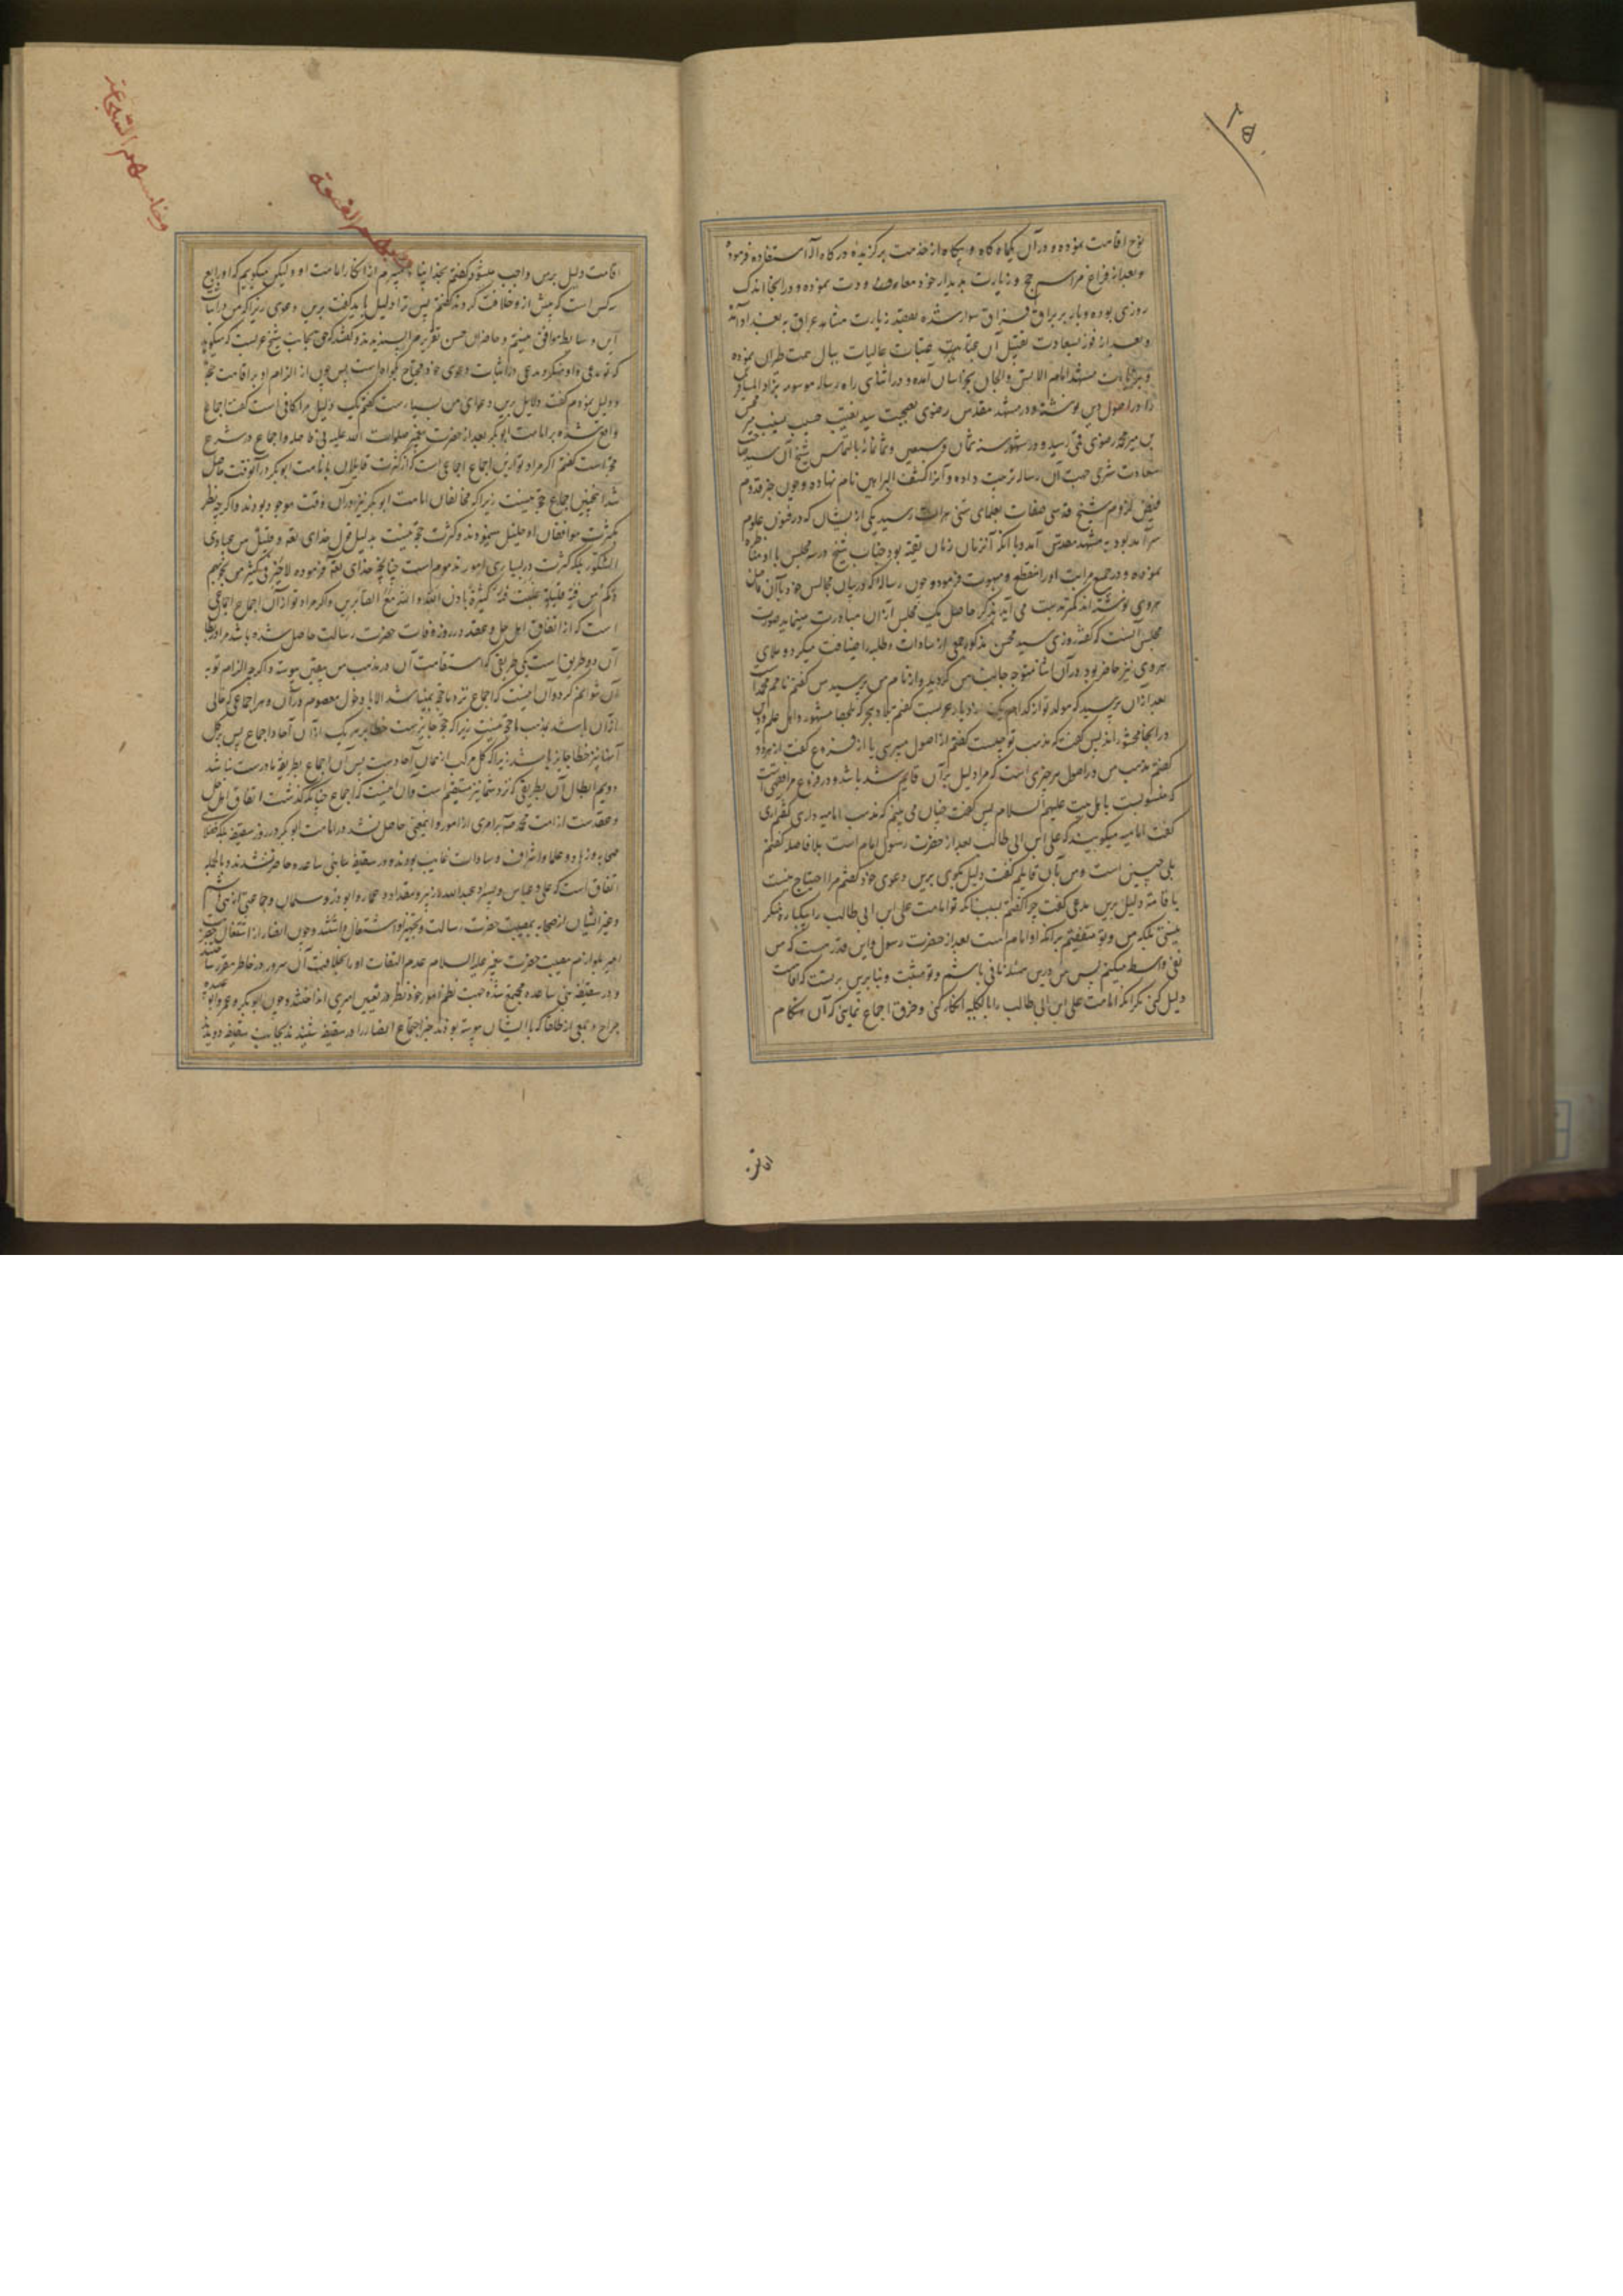 ۲۵
نوح اقامت نموده و در آن
و بعد از فراغ مراسم حج و زیارت بدیار خود معاودت نموده و در آنجا اندک
روزی بوده و باز بر براق فراق سوار شده بقصد زیارت مشاهد عراق به بغداد آمد
و بعد از فوز بسعادت تقبیل آن عتبات عالیات
مشهد امام الانس والجان بخراسان آمده و در اثنای راه رساله موسومه بزاد المسافرین
را در اصول دین نوشته و در مشهد مقدس رضوی بصحبت سید نقیب حسیب نسیب میر محسن
بن میر محمد رضوی قمی رسید و در شهور سنه ثمان و سبعین و ثمانمائه بالتماس شیخ آن سید
سعادت شرحی جهت آن رساله ترتیب داده و آنرا کشف البراهین نام نهاده و چون خبر قدوم
فیض لزوم شیخ قدسی صفات بعلمای سنی هرات رسید یکی از ایشان که در فنون علوم
سرآمد بود به مشهد مقدس آمد و با آنکه آنزمان زمان تقیه بود جناب شیخ در سه مجلس با او مناظره
نموده و در جمیع مراتب او را منقطع و مبهوت فرمود و چون رساله که در بیان مجالس خود با آن فاضل
هروی نوشته اند کمتر بدست می آید بذکر حاصل یک مجلس از آن مبادرت مینماید صورت
مجلس آنست که گفته روزی سید محسن مذکور جمعی از سادات و طلبه را ضیافت میکرد و ملای
هروی نیز حاضر بود در آن اثنا متوجه جانب من گردید و از نام من پرسید من گفتم نامم محمد است
بعد از آن پرسید که مولد تو از کدام یک از دیار عربست گفتم بلاد هجر که بلحصا مشهور و اهل علم و دین
در آنجا پس گفت که مذهب تو چیست گفتم از اصول میپرسی یا از فروع گفت از هر دو
گفتم مذهب من در اصول هر چیزی است که مرا دلیل بر آن قایم شد باشد و در فروع مرا فقهی است
که منسوبست باهل بیت علیهم السلام پس گفت چنان می بینم که مذهب امامیه داری گفتم آری
گفت امامیه میگویند که علی ابن ابی طالب بعد از حضرت رسول امام است بلا فاصله گفتم
بلی چنین است و من بآن قایلم گفت دلیل بگوی برین دعوی خود گفتم مرا احتیاج نیست
باقامة دلیل برین مدعی گفت چرا گفتم بسبب آنکه تو امامت علی ابن ابی طالب را بیکباره منکر
نیستی بلکه من و تو متفقیم بر آنکه او امام است بعد از حضرت رسول و این قدر هست که من
نفی واسطه میکنم پس من درین مسئله نافی باشم و تو مثبت و بنا برین بر تست که اقامت
دلیل کنی مگر آنکه امامت علی ابن ابی طالب را بالکلیه انکار کنی و خرق اجماع نمایی که آن هنگام
اقامت
اقامت دلیل برین واجب میشود گفتم بخدا پناه میبرم از انکار امامت او ولیکن میگویم که او رابع
کس است که پیش از او خلافت کردند گفتم پس ترا دلیل باید گفت برین دعوی زیرا که من در اثبات
این وسایط موافق نیستم و حاضران حسن تقریر مرا پسندیدند و گفتند که حق بجانب شیخ عربست که میگوید
که تو مدعی و او منکر و مدعی در اثبات دعوی خود محتاج بگواه است پس چون از الزام او بر اقامت حجة
و دلیل نمودم گفت دلایل برین دعوای من بسیار است گفتم یک دلیل مرا کافی است گفت اجماع
واقع شده بر امامت ابوبکر بعد از حضرت پیغمبر صلوات الله علیه بی فاصله و اجماع در شرع
حجة است گفتم اگر مراد تو از این اجماع اجماعی است که از کثرت قایلان بامامت ابوبکر در آنوقت حاصل
شد اینچنین اجماع حجة نیست زیرا که مخالفان امامت ابوبکر نیز در آن وقت موجود بودند و اگرچه بنظر
بکثرت موافقان او قلیل مینمودند و کثرت حجة نیست بدلیل قول خدای تعالی و قلیل من عبادی
الشکور بلکه کثرت در بسیاری امور مذموم است چنانچه خدای تعالی فرموده لا خیر فی کثیر من نجویهم
و کم من فئة قلیلة غلبت فئة کثیرة باذن الله والله مع الصابرین و اگر مراد تو از آن اجماع اجماعی
است که از اتفاق اهل حل و عقد در روز وفات حضرت رسالت حاصل شده باشد مرا در ابطال
آن دو طریق است یکی طریقی که استقامت آن در مذهب من بیقین پیوسته و اگرچه الزام تو به
آن نتوانم کرد و آن اینست که اجماع نزد ما حجة نمیباشد الا با دخول معصوم در آن و هر اجماعی که خالی
از آن باشد نزد ما حجة نیست زیرا که جایز هست خطا بر هر یک از آن آحاد اجماع پس بر کل
آنها نیز خطا جایز باشد زیرا که کل مرکب از همان آحادست پس آن اجماع بطریقه ما درست نباشد
دویم ابطال آن بطریقی که نزد شما نیز مستقیم است و آن اینست که اجماع چنانکه گذشت اتفاق اهل حل
و عقدست از امت محمد ص بر امری از امور و اینمعنی حاصل نشد در امامت ابوبکر در روز سقیفه بلکه فضلای
صحابه و زهاد و علما و اشراف و سادات غایب بودند و در سقیفه بنی ساعده حاضر نشدند و بالجمله
اتفاق است که علی و عباس و پسرا و عبدالله و زبیر و مقداد و عمار و ابوذر و سلمان و جماعتی از بنی هاشم
و غیر ایشان از صحابه بمصیبت حضرت رسالت و تجهیز او اشتغال داشتند و چون انصار از اشتغال حضرت
امیر بلوازم مصیبت حضرت پیغمبر علیه السلام عدم التفات او را بخلافت آن سرور در خاطر مقرر ساختند
و در سقیفه بنی ساعده مجتمع شده جهت نظم امور خود نظر در تعیین امیری انداختند و چون ابوبکر و عمر و ابوعبیده
جراح و جمعی از طلقا که با ایشان پیوسته بودند خبر اجتماع انصار را در سقیفه شنیدند بجانب سقیفه دویدند